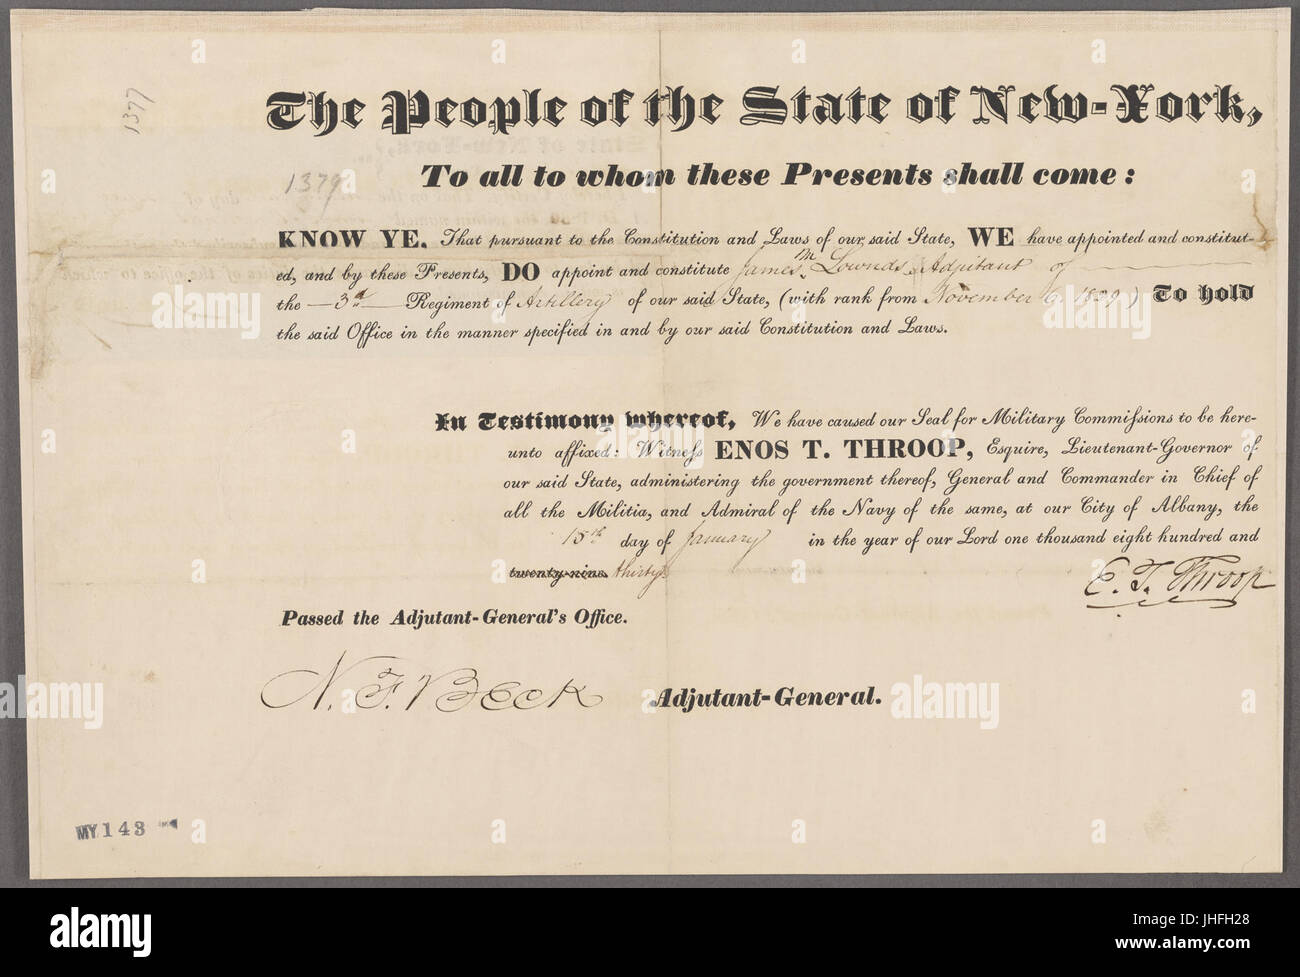 1377
The People of the State of New-York,
To all to whom these Presents shall come:
1379
KNOW YE, That pursuant to the Constitution and Laws of our said State, WE have appointed and constitut-
ed, and by these Presents, DO appoint and constitute James M. Lownds Adjutant of
the 3d Regiment of Artillery of our said State, (with rank from November 6, 1829) To hold
the said Office in the manner specified in and by our said Constitution and Laws.
In Testimony whereof, We have caused our Seal for Military Commissions to be here-
unto affixed: Witness ENOS T. THROOP, Esquire, Lieutenant-Governor of
our said State, administering the government thereof, General and Commander in Chief of
all the Militia, and Admiral of the Navy of the same, at our City of Albany, the
15th day of January in the year of our Lord one thousand eight hundred and
twenty-nine. thirty
E. T. Throop
Passed the Adjutant-General's Office.
N. F. Beck Adjutant-General.
MY 143
alamy
Image ID: JHFH28
www.alamy.com